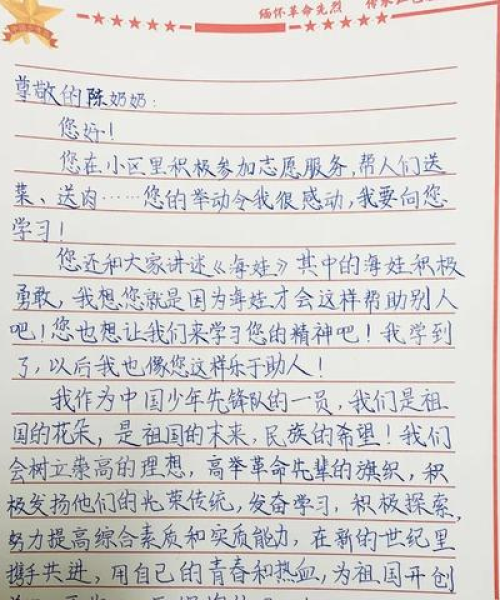 缅怀革命先烈 传承红色
尊敬的陈奶奶：
您好！
您在小区里积极参加志愿服务，帮人们送
菜、送肉……您的举动令我很感动，我要向您
学习！
您还和大家讲述《海娃》其中的海娃积极
勇敢，我想您就是因为海娃才会这样帮助别人
吧！您也想让我们来学习您的精神吧！我学到
了，以后我也像您这样乐于助人！
我作为中国少年先锋队的一员，我们是祖
国的花朵，是祖国的未来，民族的希望！我们
会树立崇高的理想，高举革命先辈的旗织，积
极发扬他们的光荣传统，发奋学习，积极探索，
努力提高综合素质和实质能力，在新的世纪里
携手共进，用自己的青春和热血，为祖国开创